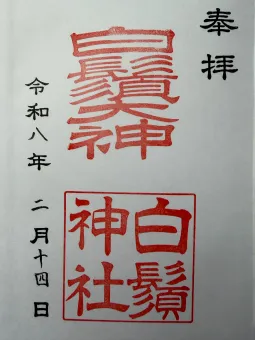 奉拝
白鬚大神
白鬚
神社
令和八年 二月十四日